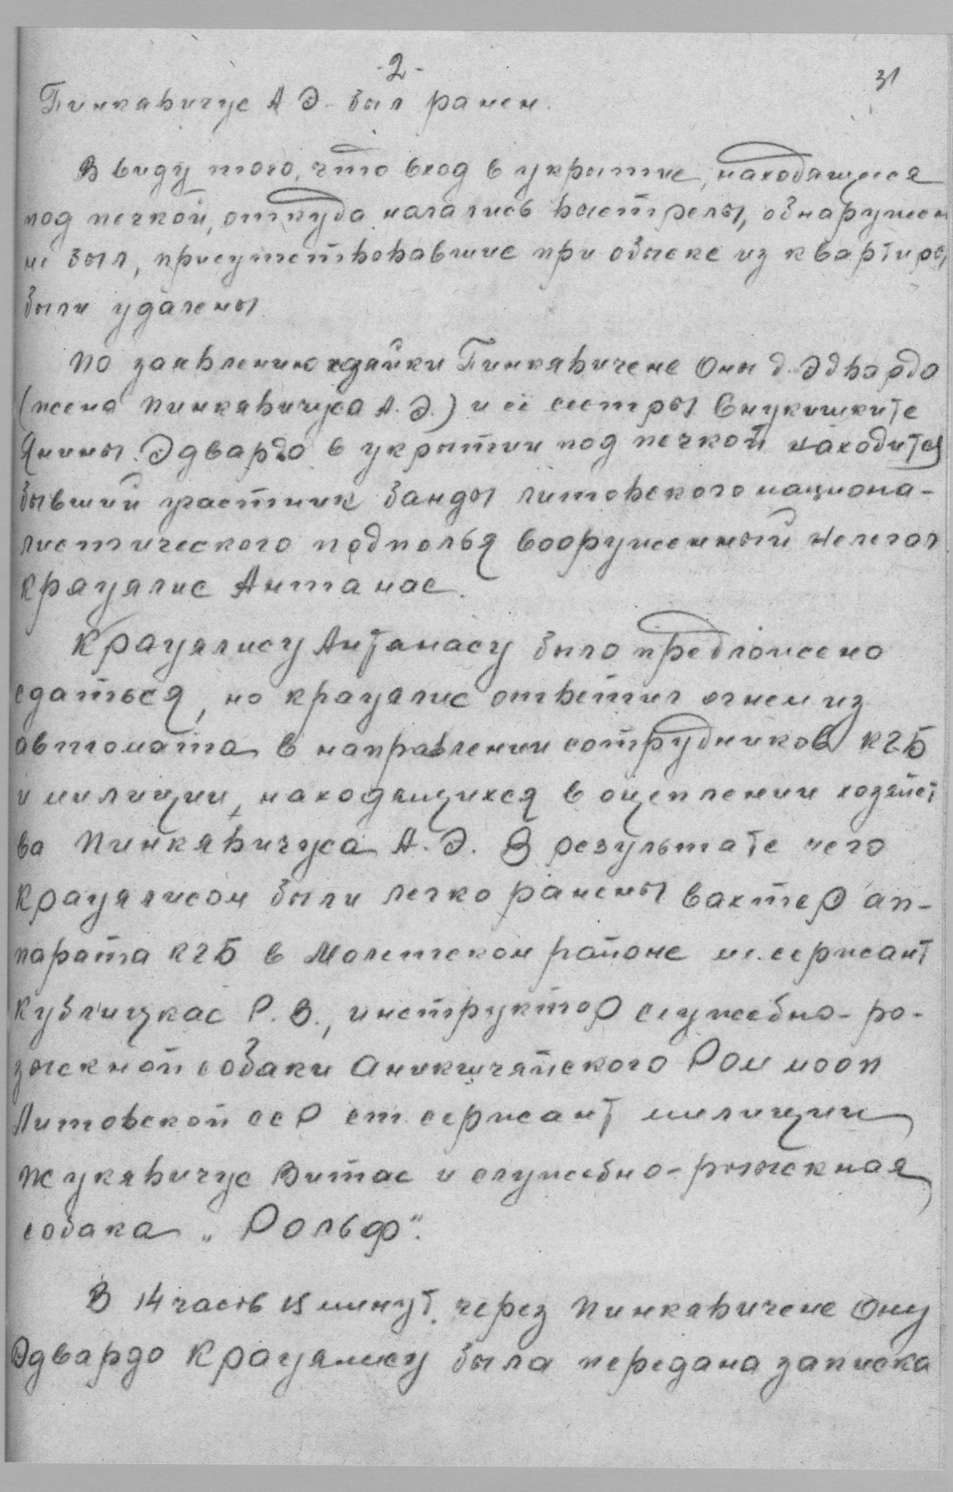 -2-
31
Пинкявичус А Э. был ранен.
В виду того, что вход в укрытие, находящееся
под печкой, откуда начались выстрелы, обнаружен
не был, присутствовавшие при обыске из квартиры
были удалены
По заявлению хозяйки Пинкявичене Оны д. Эдвардо
(жена Пинкявичуса А. Э.) и её сестры Внукишките
Янины Эдвардо в укрытии под печкой находится
бывший участник банды литовского национа-
листического подполья вооруженный нелегал
Крауялис Антанас.
Крауялису Антанасу было предложено
сдаться, но крауялис ответил огнем из
автомата в направлении сотрудников КГБ
и милиции, находящихся в оцеплении хозяйст
ва Пинкявичуса А. Э. В результате чего
Крауялисом были легко ранены вахтер ап-
парата КГБ в Молетском районе мл. сержант
Кублицкас Р. В., инструктор служебно-ро-
зыскной собаки Аникщяйского РОМ МООП
Литовской ССР ст. сержант милиции
Жукявичус Витас и служебно-розыскная
собака „Рольф".
В 14 часов 15 минут через Пинкявичене Ону
Эдвардо Крауялису была передана записка